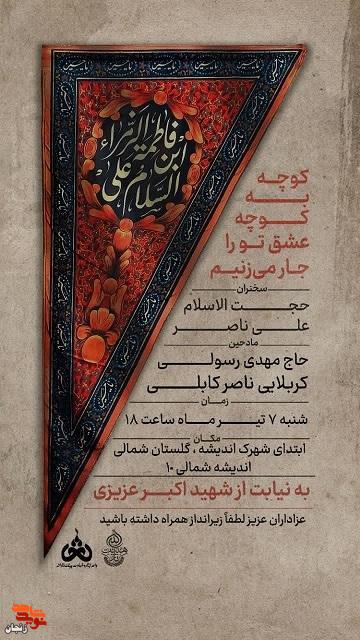 السلام علی
ابن فاطمة الزهراء
کوچه
به
کوچه
عشق تو را
جار می‌زنیم
سخنران
حجت الاسلام
علی ناصر
مادحین
حاج مهدی رسولی
کربلایی ناصر کابلی
زمان
شنبه ۷ تیر ماه ساعت ۱۸
مکان
ابتدای شهرک اندیشه ، گلستان شمالی
اندیشه شمالی ۱۰
به نیابت از شهید اکبر عزیزی
عزاداران عزیز لطفاً زیرانداز همراه داشته باشید
زنجان